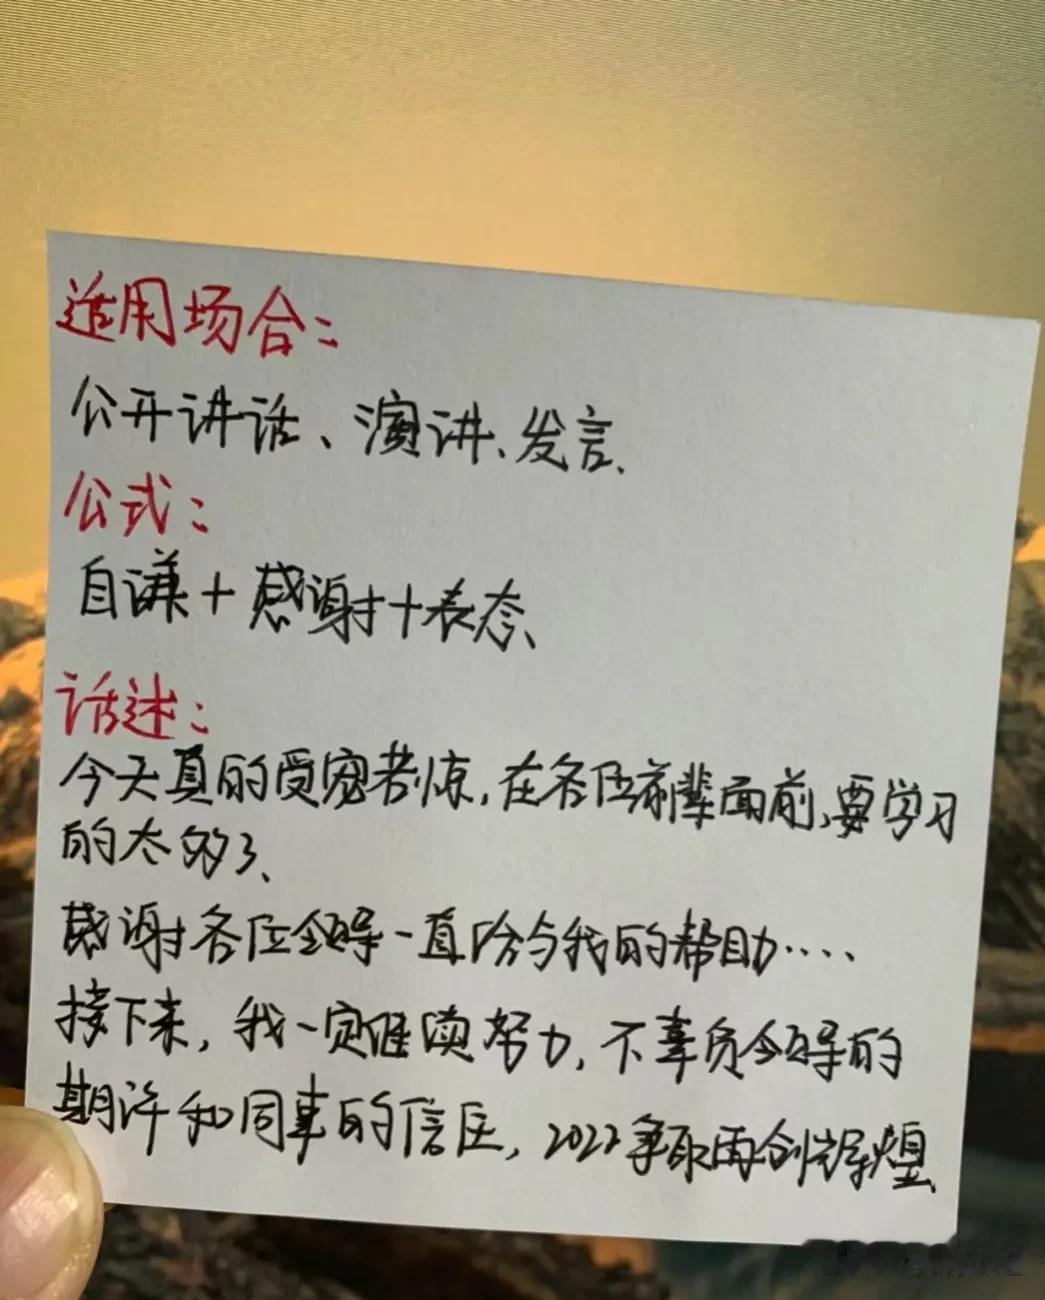 适用场合：
公开讲话、演讲、发言.
公式：
自谦＋感谢＋表态、
话述：
今天真的受宠若惊，在各位前辈面前，要学习
的太多了、
感谢各位领导一直给与我的帮助····
接下来，我一定继续努力，不辜负领导的
期许和同事的信任，2022争取再创辉煌、